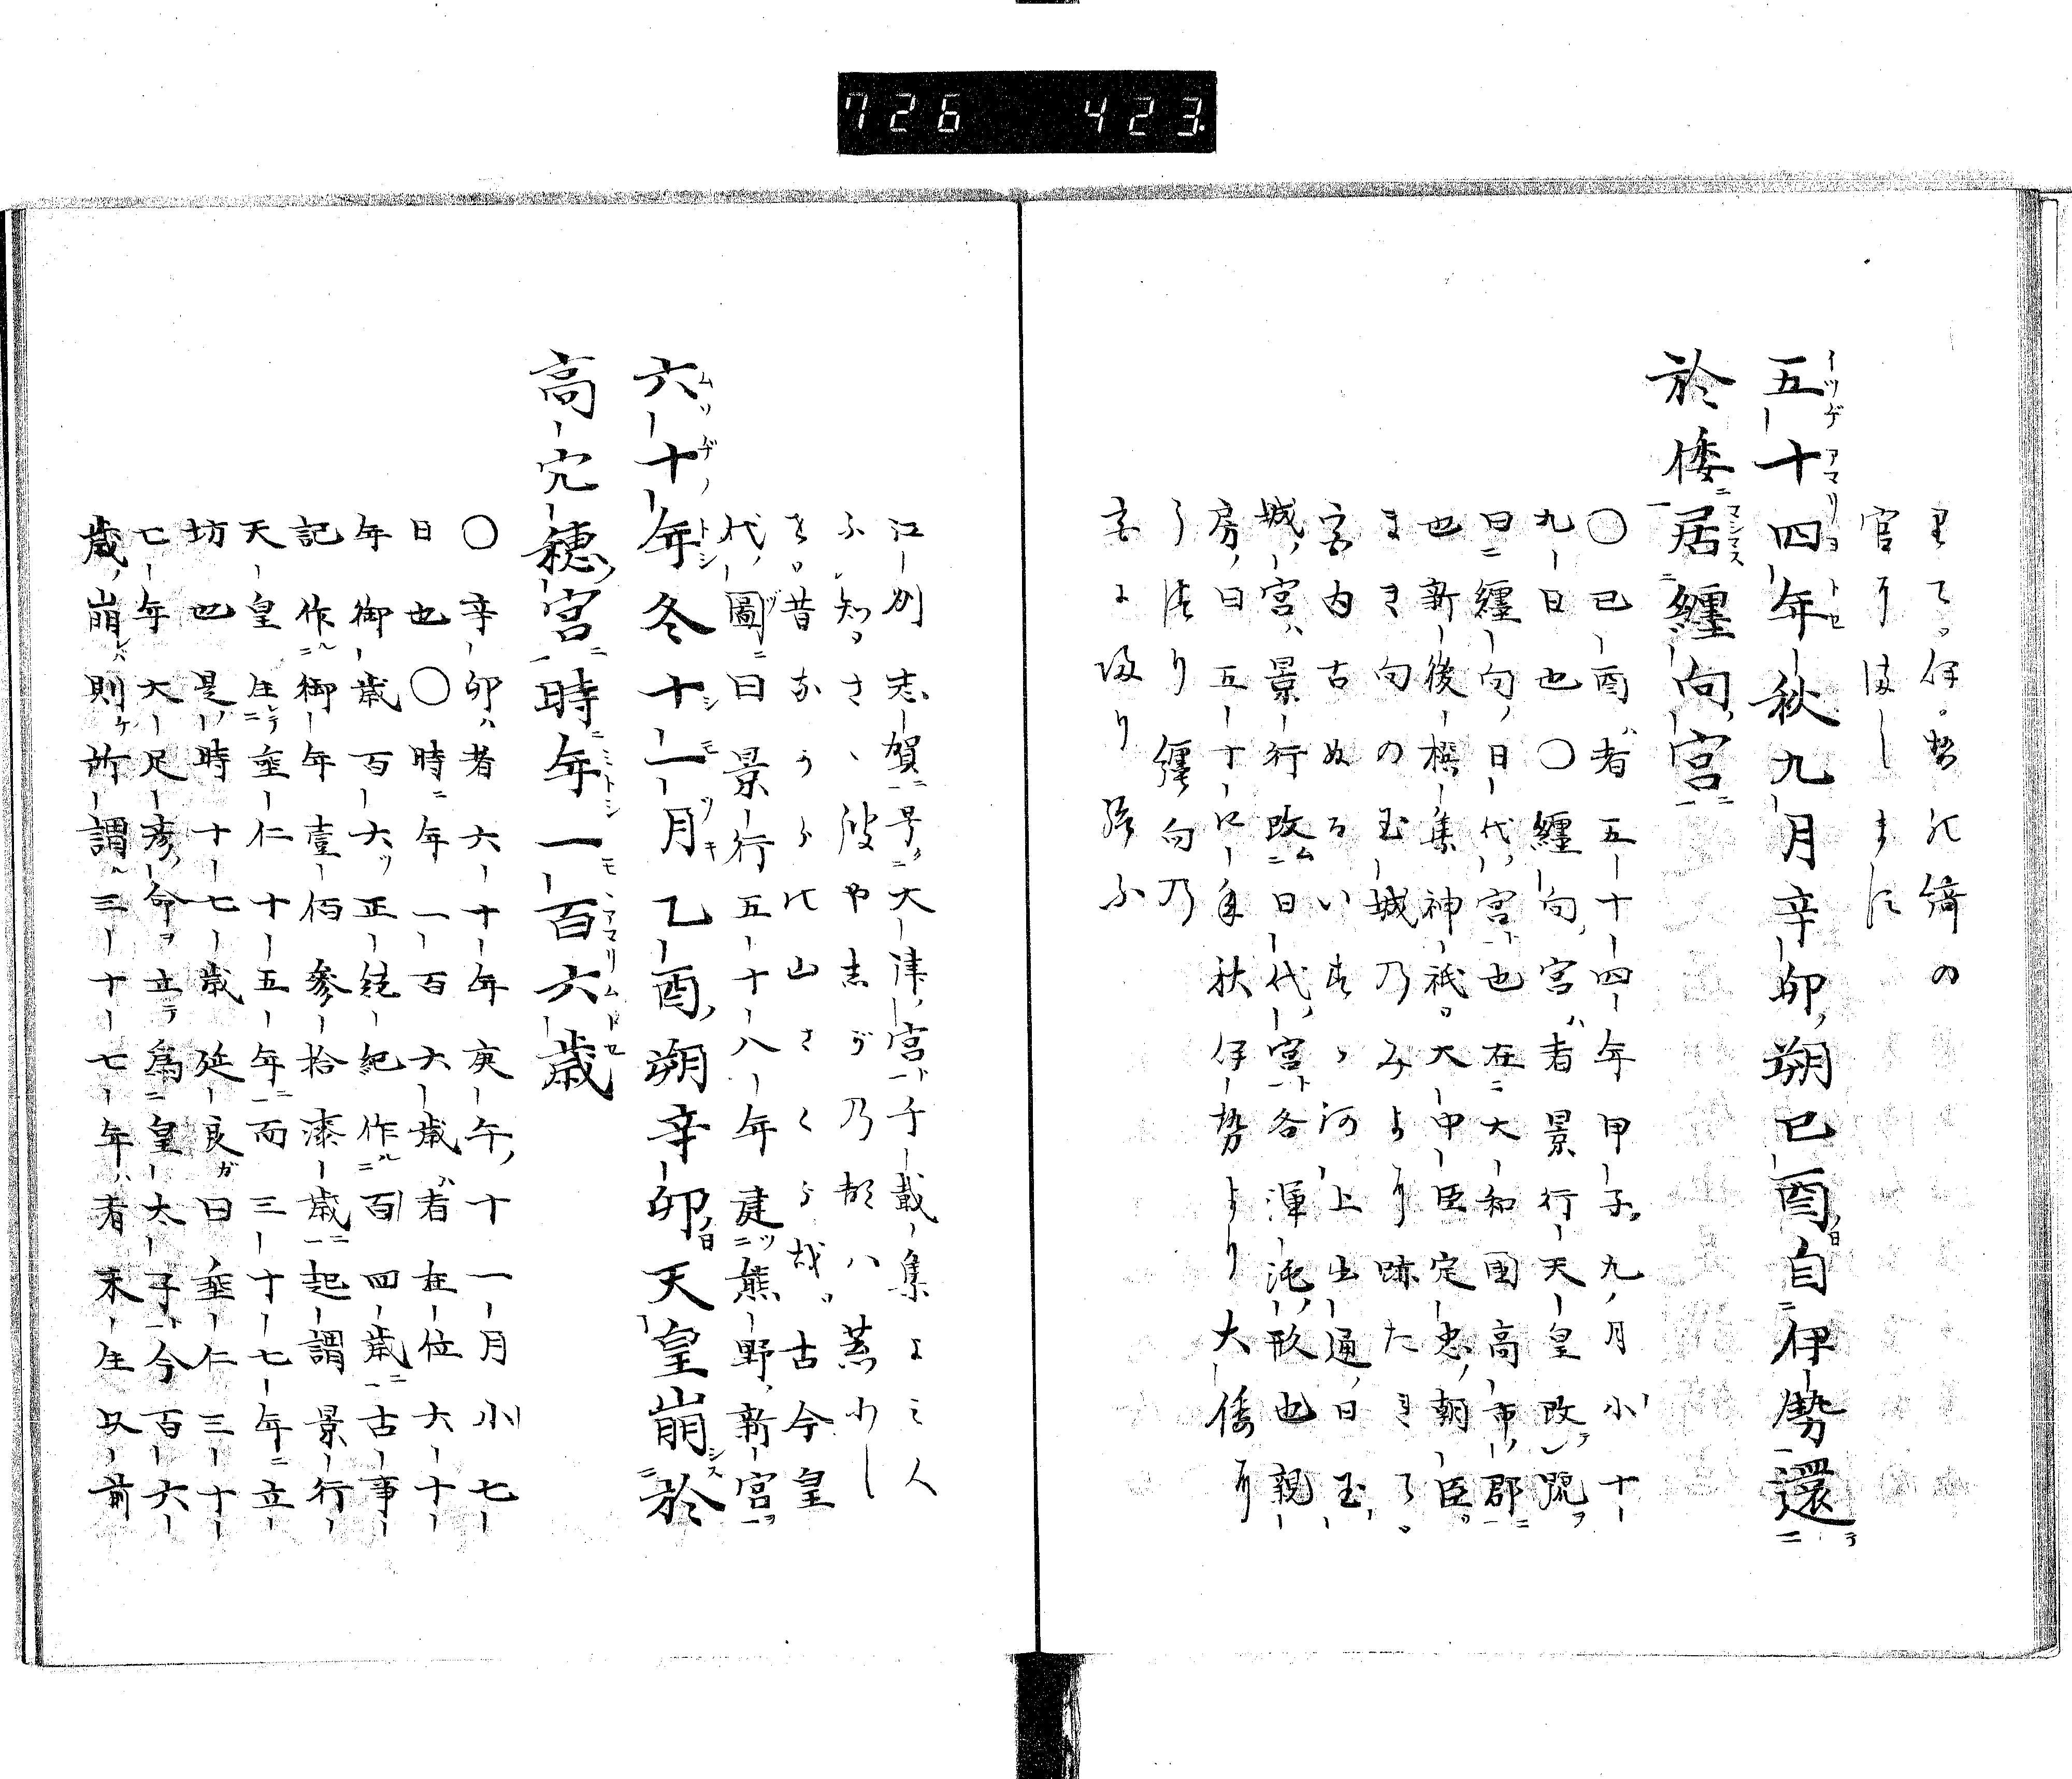 726 423.
里て伊勢能綺の
宮耳満しまに
五十四年秋九月辛卯朔己酉自伊勢還
於倭居纏向宮
〇己酉者五十四年甲子九月小十
九日也〇纏向宮者景行天皇改號
曰纏向日代宮也在大和國高市郡
也新後撰集神祇大中臣定忠朝臣
まき向の玉城乃みより耳跡たれて
宮内古ぬるいすゝ河上出通日玉
城宮景行改曰日代宮各渾沌形也親
房曰五十四年秋伊勢より大倭耳
う徒り纏向乃
宮に還り給ふ
江州志賀号大津宮千載集よみ人
ふ知さゝ波や志賀乃都ハ荒れし
を昔なから能山さくら哉古今皇
代圖曰景行五十八年建熊野新宮
六十年冬十一月乙酉朔辛卯天皇崩於
高穴穂宮時年一百六歳
〇辛卯者六十年庚午十一月小七
日也〇時年一百六歳者在位六十
年御歳百六正統紀作百四歳古事
記作御年壹佰參拾漆歳起謂景行
天皇生垂仁十五年而三十七年立
坊也是時十七歳延良曰垂仁三十
七年大足彦命立為皇太子今百六
歳崩則所謂三十七年者未生以前